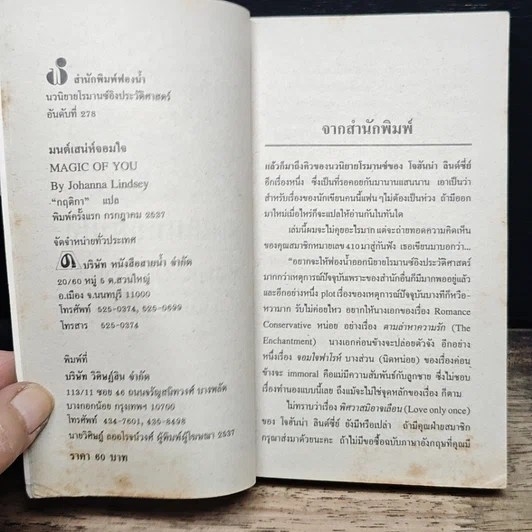 สำนักพิมพ์ฟองน้ำ
นวนิยายโรมานซ์อิงประวัติศาสตร์
อันดับที่ 278
มนต์เสน่ห์จอมใจ
MAGIC OF YOU
By Johanna Lindsey
"กฤติกา" แปล
พิมพ์ครั้งแรก กรกฎาคม 2537
จัดจำหน่ายทั่วประเทศ
บริษัท หนังสือสายน้ำ จำกัด
20/60 หมู่ 5 ต.สวนใหญ่
อ.เมือง จ.นนทบุรี 11000
โทรศัพท์ 525-0374, 525-0699
โทรสาร 525-0374
พิมพ์ที่
บริษัท วิศิษฏ์สิน จำกัด
113/11 ซอย 46 ถนนจรัญสนิทวงศ์ บางพลัด
บางกอกน้อย กรุงเทพฯ 10700
โทรศัพท์ 434-7601, 435-8498
นายวิศิษฏ์ ถออโรจน์วงศ์ ผู้พิมพ์ผู้โฆษณา 2537
ราคา 60 บาท
จากสำนักพิมพ์
แล้วก็มาถึงคิวของนวนิยายโรมานซ์ของ โจฮันน่า ลินด์ซี่ย์
อีกเรื่องหนึ่ง ซึ่งเป็นที่รอคอยกันมานานแสนนาน เอาเป็นว่า
สำหรับเรื่องของนักเขียนคนนี้แฟนๆไม่ต้องเป็นห่วง ถ้ามีออก
มาใหม่เมื่อไหร่ก็จะแปลให้อ่านกันในทันใด
เล่มนี้ผมจะไม่คุยอะไรมาก แต่จะถ่ายทอดความคิดเห็น
ของคุณสมาชิกหมายเลข 410 มาสู่กันฟัง เธอเขียนมาบอกว่า...
"อยากจะให้ฟองน้ำออกนิยายโรมานซ์อิงประวัติศาสตร์
มากกว่าเหตุการณ์ปัจจุบันเพราะของสำนักอื่นก็มีมากพออยู่แล้ว
และอีกอย่างหนึ่ง plot เรื่องของเหตุการณ์ปัจจุบันบางทีก็หวือ-
หวามาก รับไม่ค่อยไหว อยากให้นางเอกของเรื่อง Romance
Conservative หน่อย อย่างเรื่อง ตามล่าหาความรัก (The
Enchantment) นางเอกค่อนข้างจะปล่อยตัวจัง อีกอย่าง
หนึ่งเรื่อง จอมใจฟาโรห์ บางส่วน (นิดหน่อย) ของเรื่องค่อน
ข้างจะ immoral คือแม่มีความสัมพันธ์กับลูกชาย ซึ่งไม่ชอบ
เรื่องทำนองแบบนี้เลย ถึงแม้จะไม่ใช่จุดหลักของเรื่อง ก็ตาม
ไม่ทราบว่าเรื่อง พิศวาสมิอาจเลือน (Love only once)
ของ โจฮันน่า ลินด์ซี่ย์ ยังมีหรือเปล่า ถ้ามีคุณฝ่ายสมาชิก
กรุณาส่งมาด้วยนะคะ ถ้าไม่มีขอซื้อฉบับภาษาอังกฤษที่คุณมี